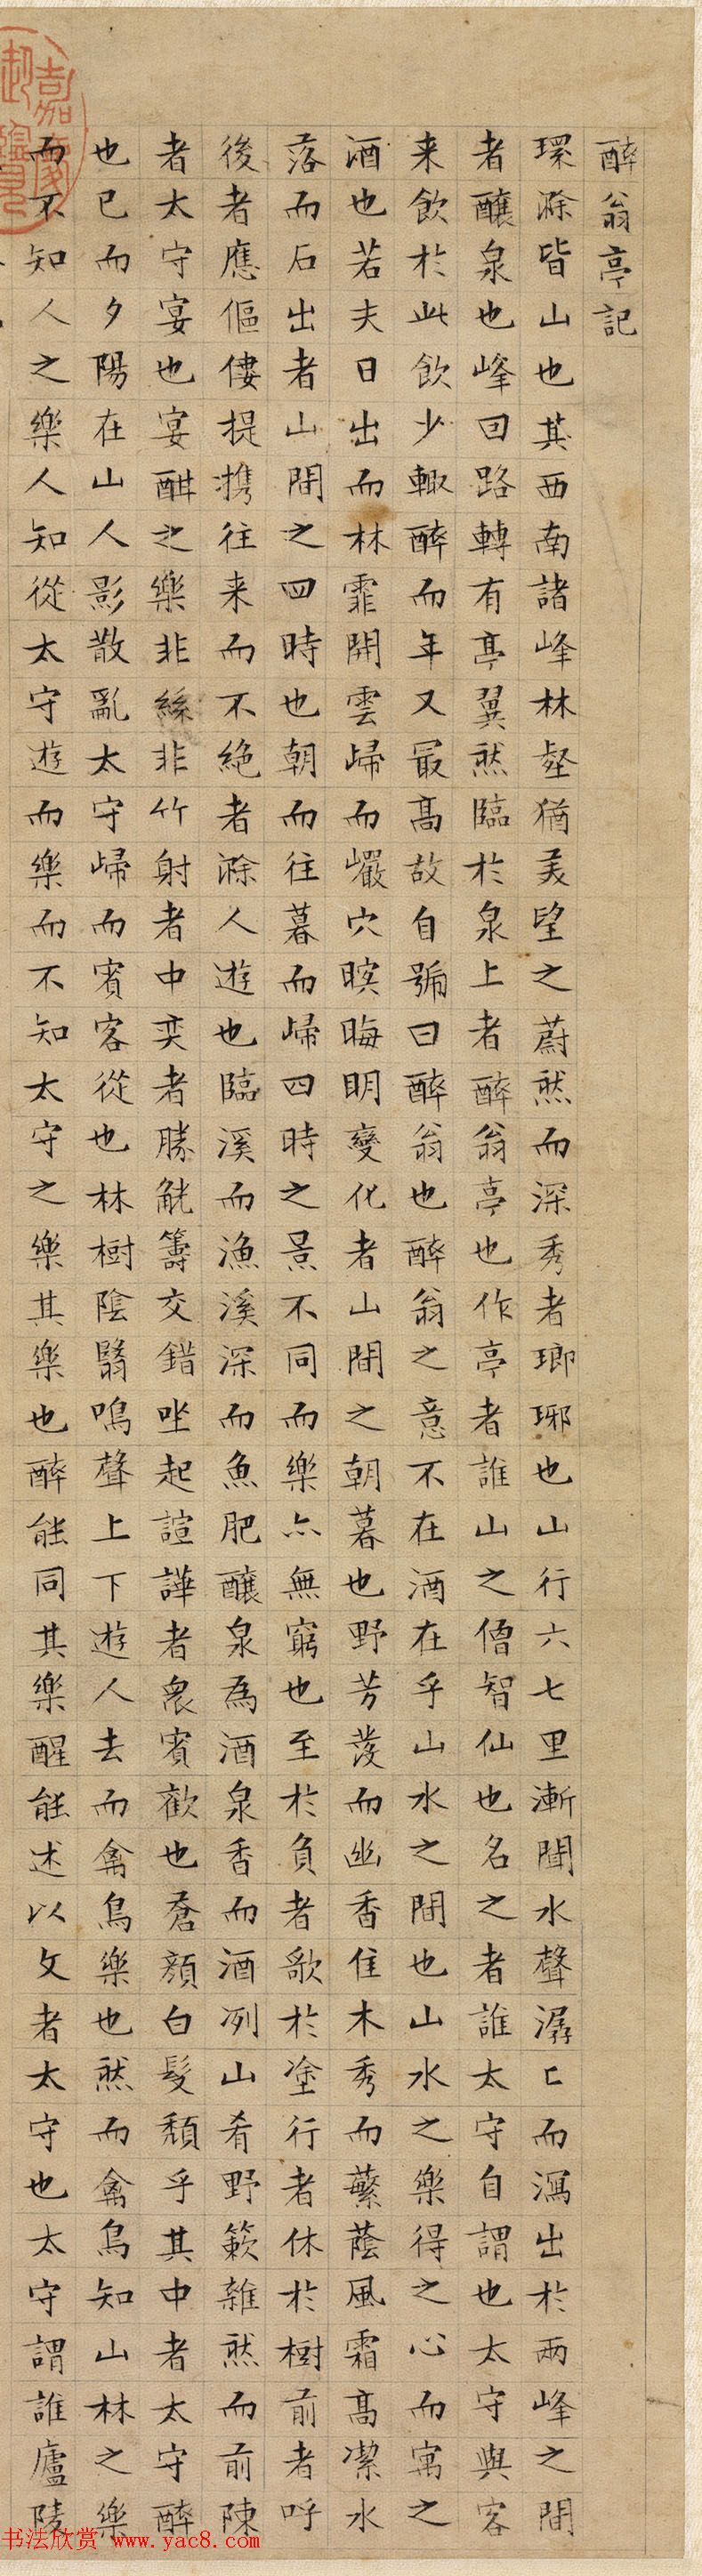 醉翁亭記
環滁皆山也其西南諸峰林壑猶美望之蔚然而深秀者瑯琊也山行六七里漸聞水聲潺〻而瀉出於兩峰之間
者釀泉也峰回路轉有亭翼然臨於泉上者醉翁亭也作亭者誰山之僧智仙也名之者誰太守自謂也太守與客
来飲於此飲少輙醉而年又最高故自號曰醉翁也醉翁之意不在酒在乎山水之間也山水之樂得之心而寓之
酒也若夫日出而林霏開雲歸而巖穴暝晦明變化者山間之朝暮也野芳發而幽香佳木秀而蘩蔭風霜高潔水
落而石出者山間之四時也朝而往暮而歸四時之景不同而樂亦無窮也至於負者歌於塗行者休於樹前者呼
後者應傴僂提携往来而不絶者滁人遊也臨溪而漁溪深而魚肥釀泉為酒泉香而酒冽山肴野簌雜然而前陳
者太守宴也宴酣之樂非絲非竹射者中奕者勝觥籌交錯坐起諠譁者衆賓歡也蒼顏白髮頹乎其中者太守醉
也已而夕陽在山人影散亂太守歸而賓客從也林樹陰翳鳴聲上下遊人去而禽鳥樂也然而禽鳥知山林之樂
而不知人之樂人知從太守遊而樂而不知太守之樂其樂也醉能同其樂醒能述以文者太守也太守謂誰廬陵
书法欣赏 www.yac8.com